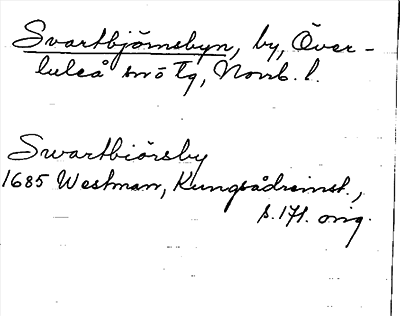 Svartbjörnsbyn, by, Över-
luleå sn i Tg, Norrb. l.
Swartbiörsby
1685 Westman, Kungsådreinst.,
s. 171. orig.